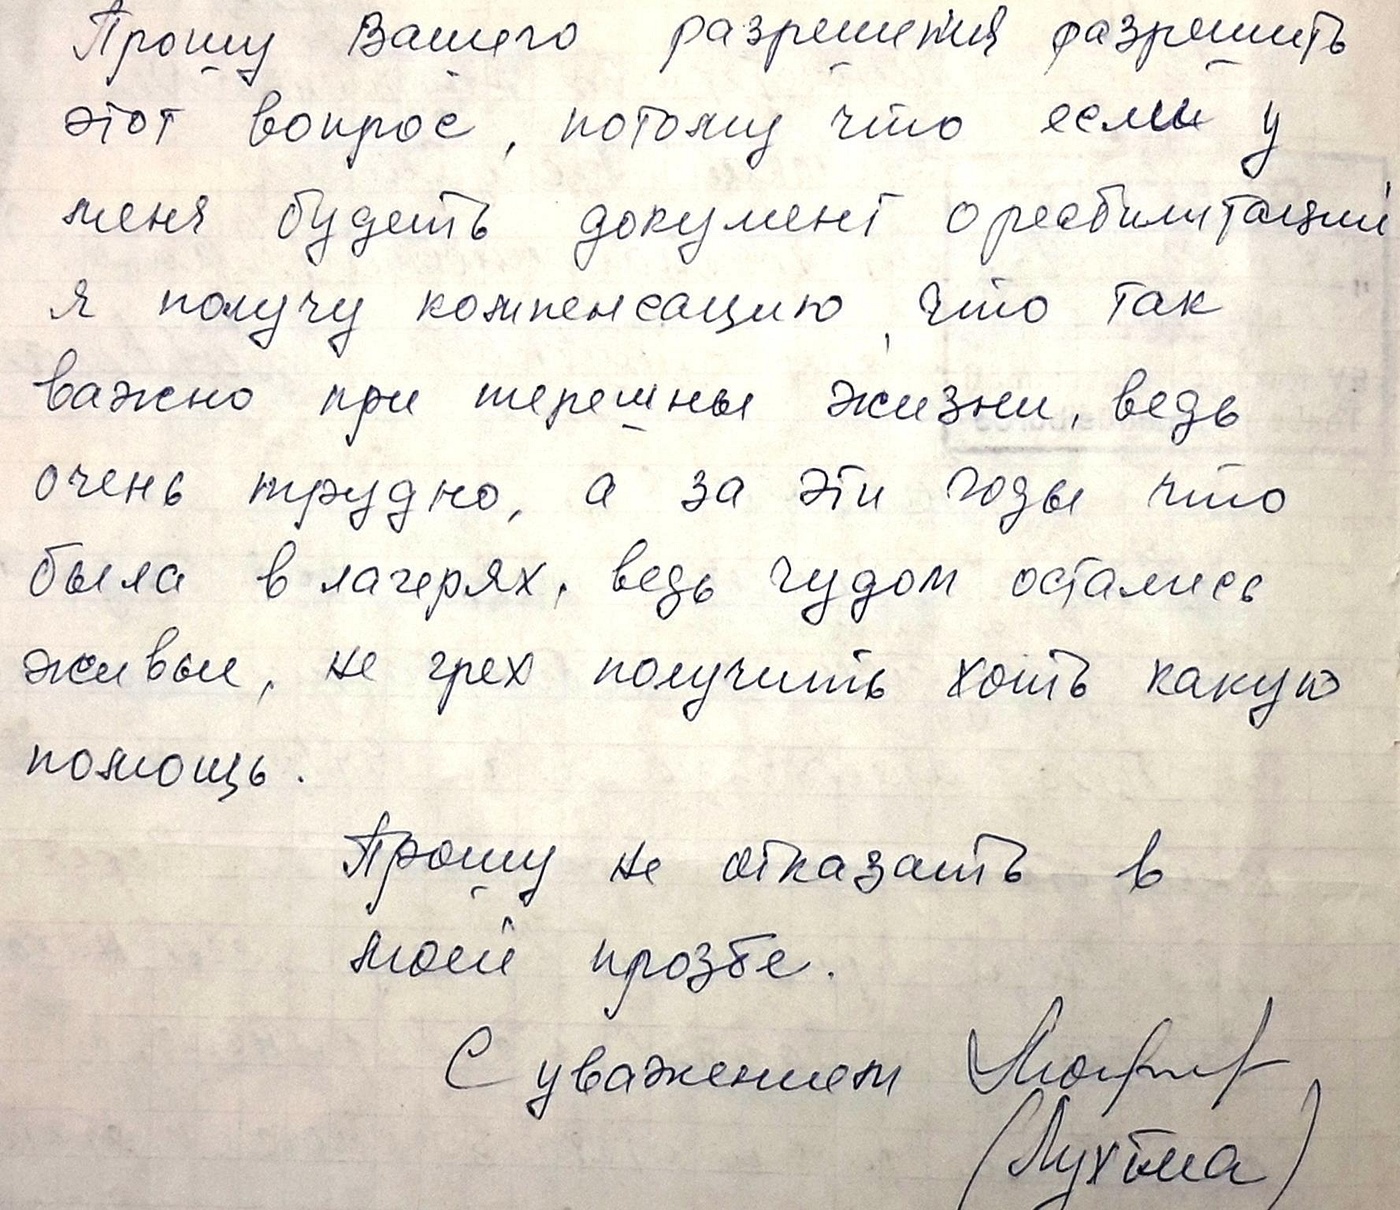 Прошу Вашего разрешения разрешить
этот вопрос, потому что если у
меня будеть документ о реабилитации
я получу компенсацию, что так
важно при терешны жизни, ведь
очень трудно, а за эти годы что
была в лагерях, ведь чудом остались
живые, не грех получить хоть какую
помощь.
Прошу не отказать в
моей прозбе.
С уважением